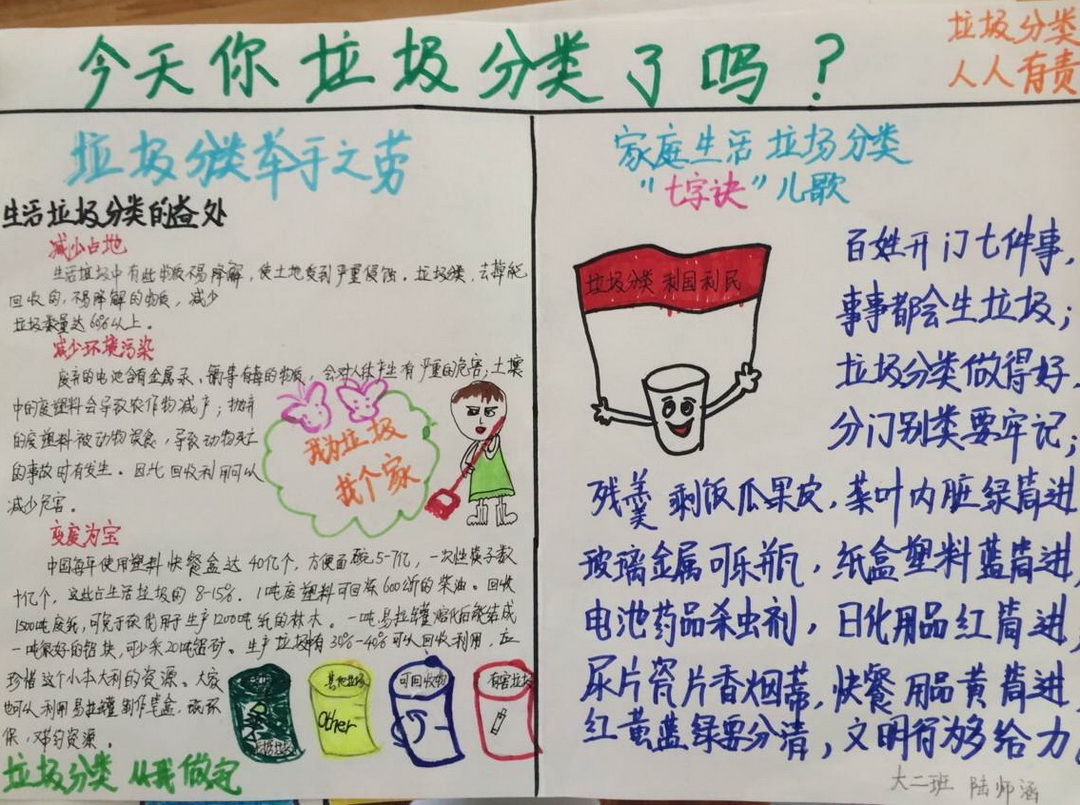 今天你垃圾分类了吗？
垃圾分类
人人有责
垃圾分类牵手之劳
生活垃圾分类的益处
减少占地
生活垃圾中有些物质不易降解，使土地受到严重侵蚀。垃圾分类，去掉能
回收的，不易降解的物质，减少
垃圾数量达60%以上。
减少环境污染
废弃的电池含有金属汞、镉等有毒的物质，会对人体产生有严重的危害；土壤
中的废塑料会导致农作物减产；抛弃
的废塑料被动物误食，导致动物死亡
的事故时有发生。因此回收利用可以
减少危害。
变废为宝
中国每年使用塑料快餐盒达40亿个，方便面碗5-7亿，一次性筷子数
十亿个，这些占生活垃圾的8-15%。1吨废塑料可回炼600斤的柴油。回收
1500吨废纸，可免于砍伐用于生产1200吨纸的林木。一吨易拉罐溶化后能结成
一吨很好的铝块，可少采20吨铝矿。生产垃圾有30%-40%可以回收利用，应
珍惜这个小本大利的资源。大家
也可以利用易拉罐制作笔盒，既环
保，又节约资源。
垃圾分类 从我做起
我为垃圾
找个家
其他垃圾
Other
可回收物
有害垃圾
家庭生活垃圾分类
“七字诀”儿歌
垃圾分类 利国利民
百姓开门七件事，
事事都会生垃圾；
垃圾分类做得好，
分门别类要牢记；
残羹剩饭瓜果皮，菜叶内脏绿筒进
玻璃金属可乐瓶，纸盒塑料蓝筒进，
电池药品杀虫剂，日化用品红筒进，
尿片瓷片香烟蒂，快餐用品黄筒进，
红黄蓝绿要分清，文明行为够给力。
大二班 陆师涵